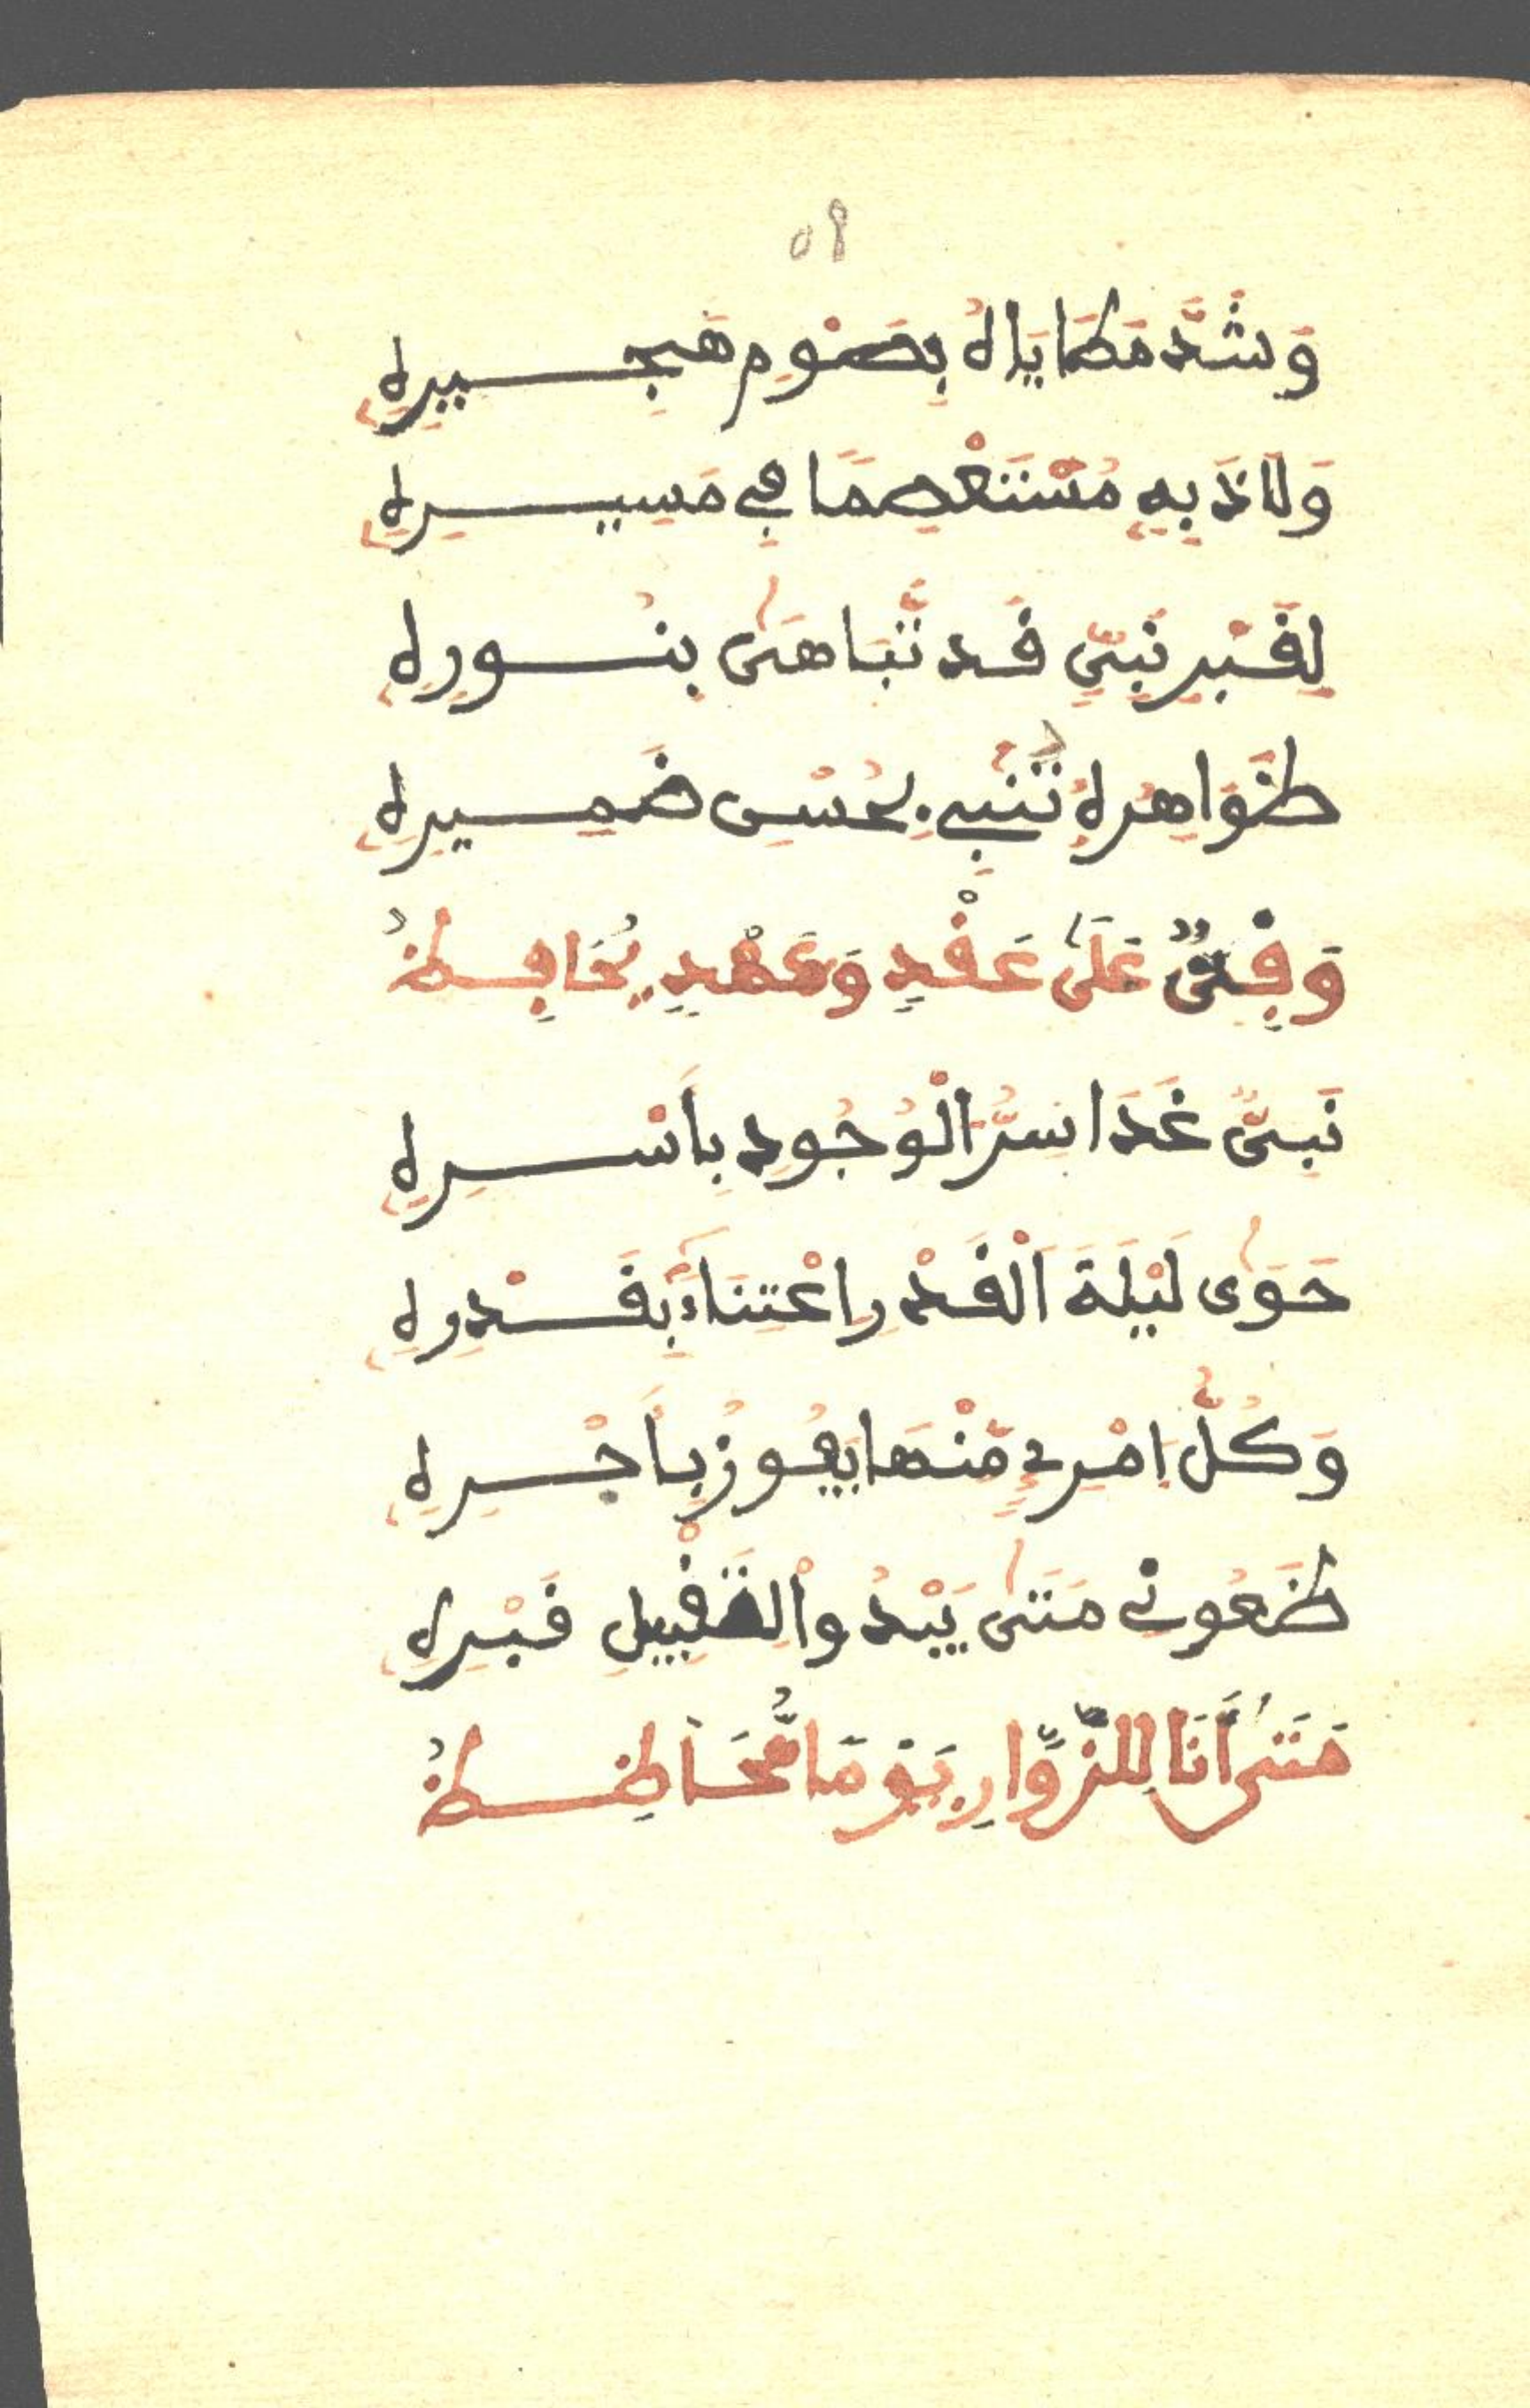 58
وَشَدَّ مَطَايَاهُ بِصَوْمِ هَجِيرِهِ
وَلَاذَ بِهِ مُسْتَعْصِمًا فِي مَسِيرِهِ
لِقَبْرِ نَبِيٍّ قَد تَّبَاهَىٰ بِنُورِهِ
ظَوَاهِرُهُ تُنْبِي بِحُسْنِ ضَمِيرِهِ
وَفِيٌّ عَلَىٰ عَقْدٍ وَعَهْدٍ يُحَافِظُ
نَبِيٌّ غَدَا سِرَّ الْوُجُودِ بِأَسْرِهِ
حَوَىٰ لَيْلَةَ الْقَدْرِ اعْتِنَاءً بِقَدْرِهِ
وَكُلُّ امْرِئٍ مِّنْهَا يَفُوزُ بِأَجْرِهِ
ظَعُونِي مَتَىٰ يَبْدُو لِتَقْبِيلِ قَبْرِهِ
مَتَىٰ أَنَا لِلزُّوَّارِ يَوْمًا مُّحَاظِظُ